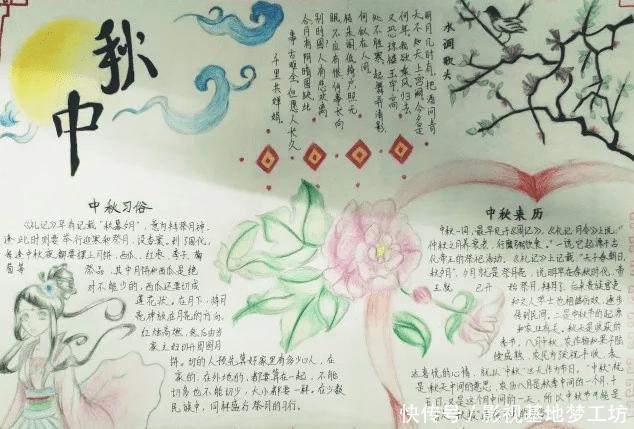 中秋
水调歌头
明月几时有,把酒问青
天不知天上宫阙,今夕是
何年我欲乘风归去
又恐琼楼玉宇高
处不胜寒起舞弄清影
何似在人间
转朱阁低绮户照无
眠不应有恨何事长向
别时圆人有悲欢离
合月有阴晴圆缺此
事古难全但愿人长久
千里共婵娟。
中秋习俗
《礼记》早有记载"秋暮夕月",意为拜祭月神,
逢此时则要举行迎寒和祭月,设香案。到了周代,
每逢中秋夜都要摆上月饼,西瓜、红枣、李子、葡
萄等 祭品,其中月饼和西瓜是绝
对不能少的,西瓜还要切成
莲花状。在月下,将月
亮神放在月亮的方向,
红烛高燃,然后由当
家主妇切开团圆月
饼。切的人预先算好家里有多少口人,在
家的,在外地的,都要算在一起,不能
切多也不能切少,大小都要一样。在少数
民族中,同样盛行祭月的习俗。
中秋来历
中秋一词,最早见于《周礼》,《礼记·月令》上说:"
仲秋之月养衰老,行糜粥饮食。"一说它起源于古
代帝王的祭祀活动。《礼记》上记载:"天子春朝日,
秋夕月",夕月就是祭月亮,说明早在春秋时代,帝
王就 已开 始祭月、拜月了。后来贵族官吏
和文人学士也相继仿效,逐步
传到民间。二是中秋节的起源
和农业有关。秋天是收获的
季节,八月中秋,农作物和果子陆
续成熟,农民为庆祝丰收,表
达喜悦的心情,就以"中秋"这天作为节日。"中秋"就
是秋天中间的意思,农历八月是秋季中间的一个月,十
五日,又是这个月中间的一天,所以中秋节可能是
快传号/影视基地梦工坊